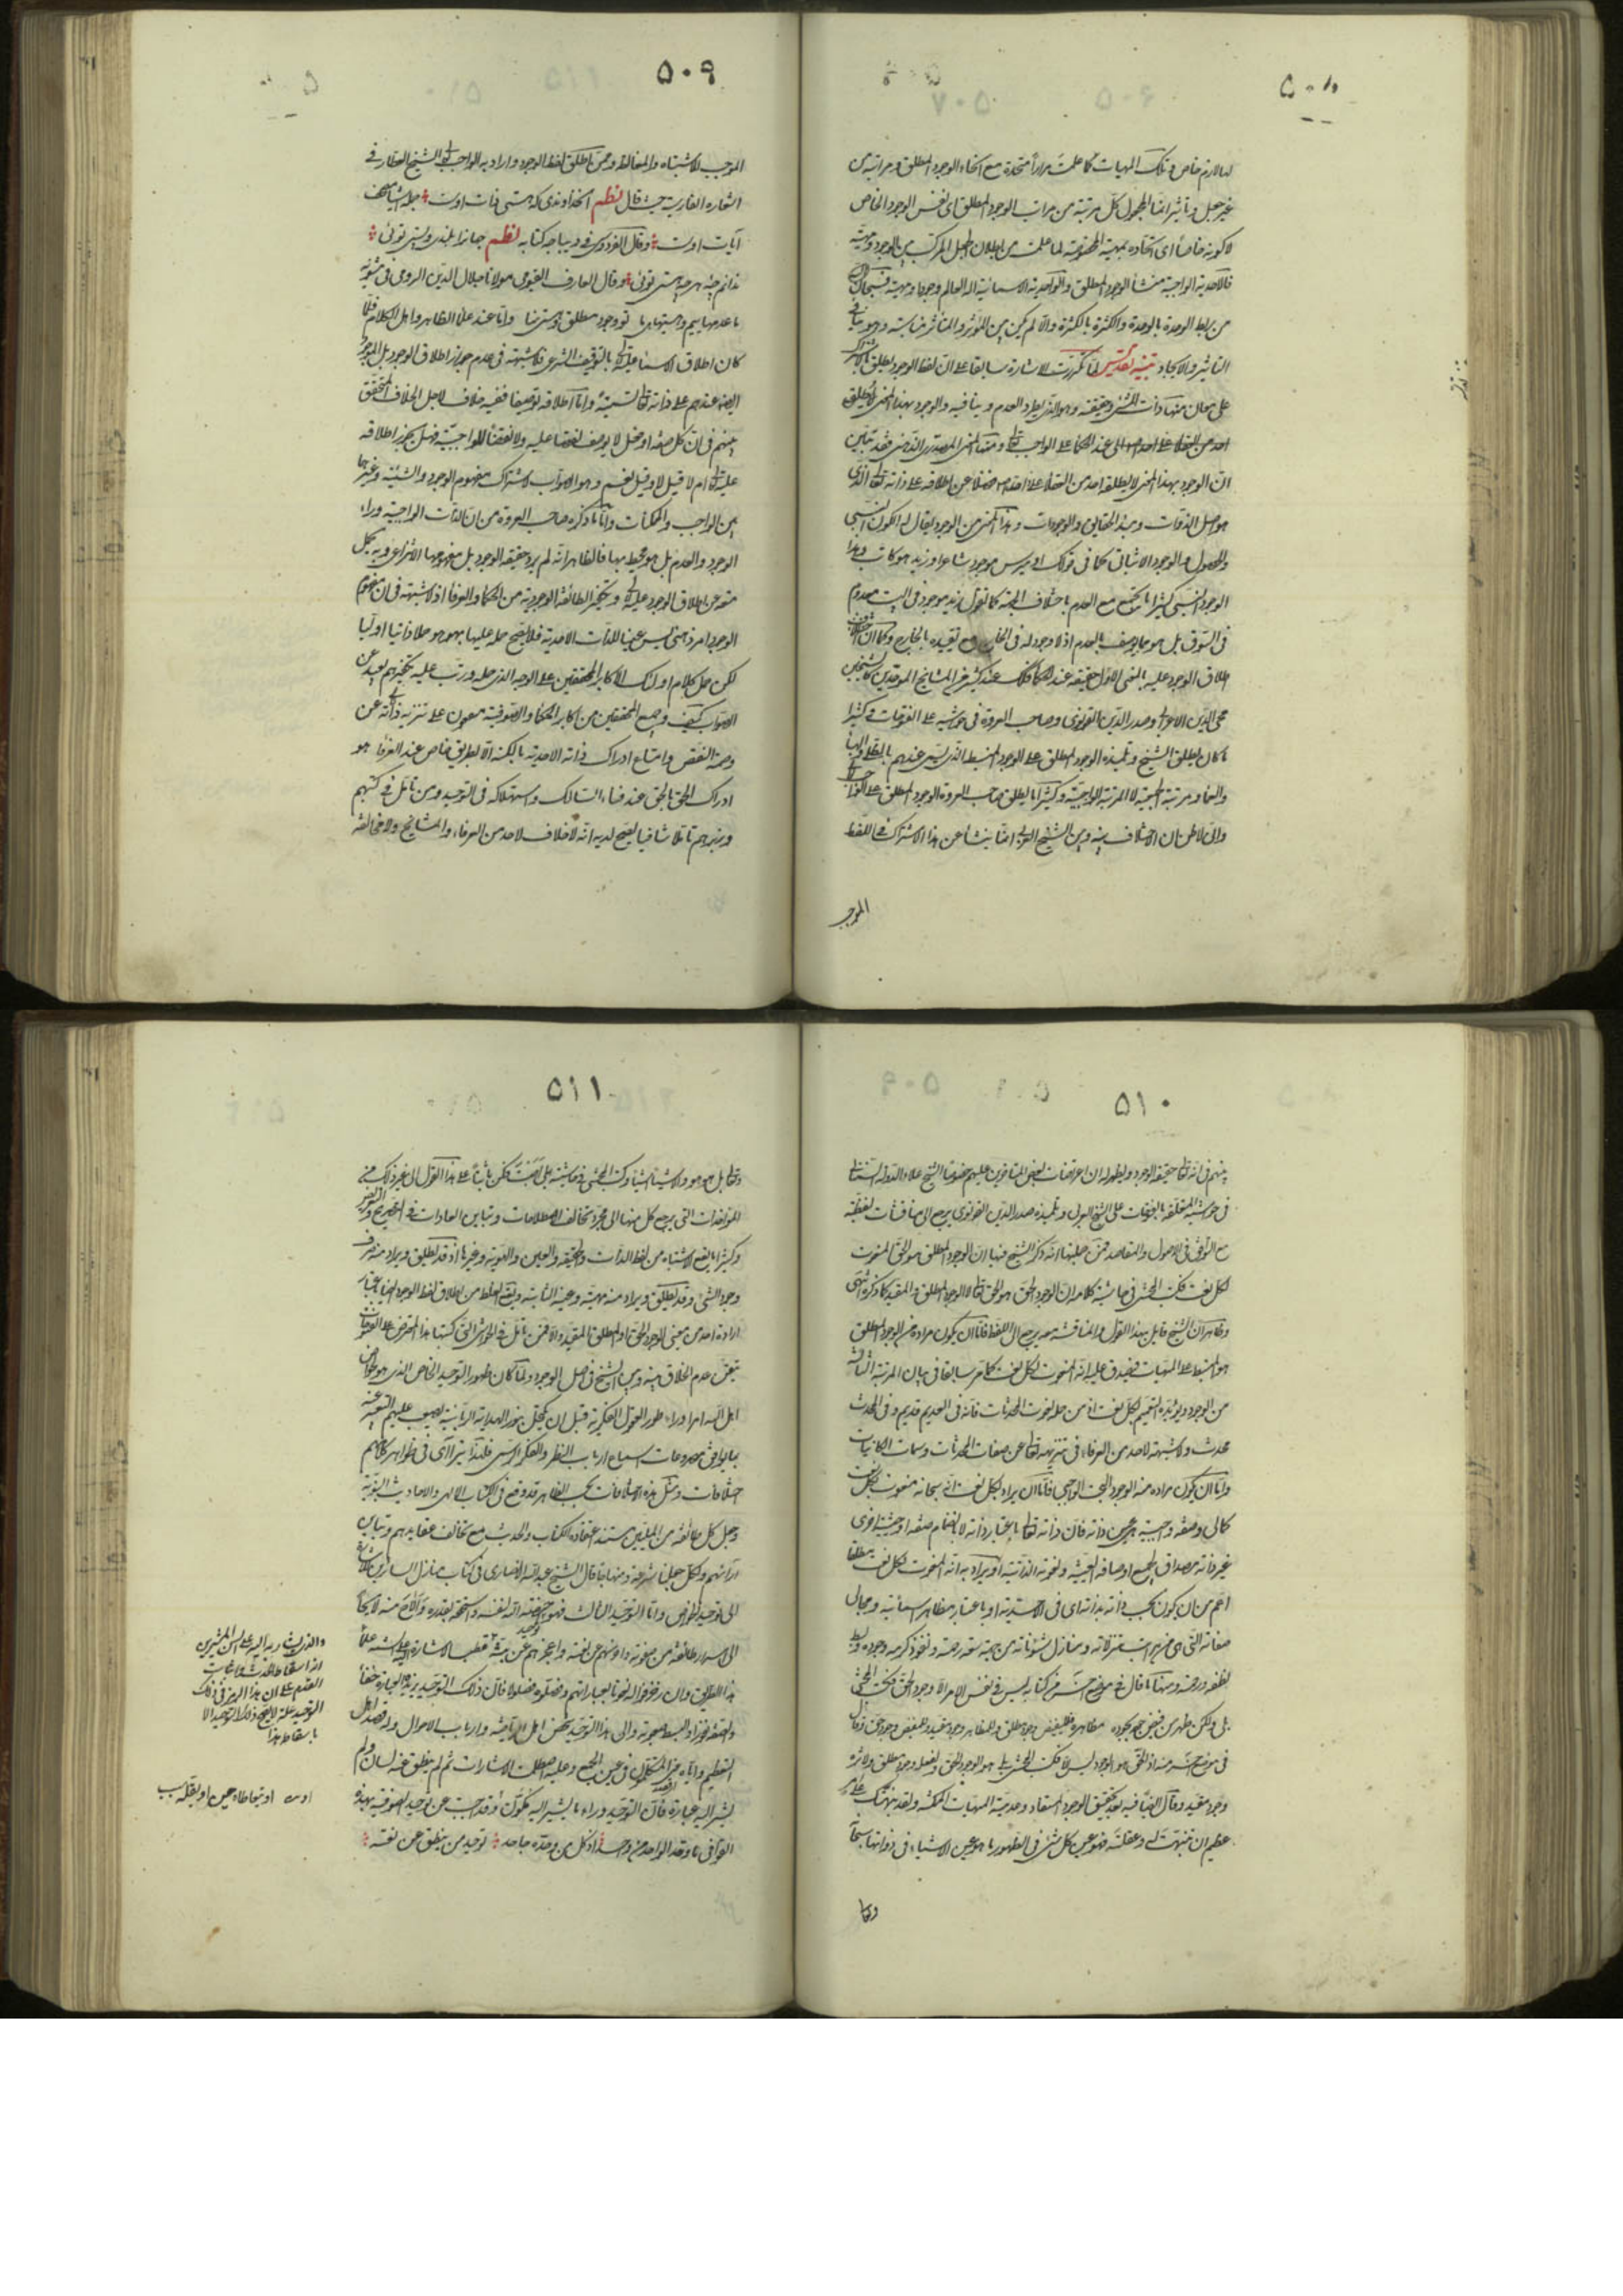 ٥٠٨
لها لازم خاص وتلك المهيات كما علمت مراراً متحدة مع انحاء الوجود المطلق ومراتبه من
غير جعل وتأثير انما المجعول كل مرتبة من مراتب الوجود المطلق اى نفس الوجود الخاص
لا كونه خاصاً اى اتحاده بمهيته المخصوصة لما علمت من بطلان الجعل المركب بين الوجود ومهيته
فالاحدية الواجبية منشأ الوجود المطلق والواحدية الاسمائية اله العالم وجودا ومهية فسبحان
من ربط الوحدة بالوحدة والكثرة بالكثرة والا لم يكن بين المؤثر والمتأثر مناسبة وهو ينافى
التأثير والايجاد تنبيه تقديسى لما تكررت الاشارة سابقا على ان لفظ الوجود يطلق بالاشتراك
على معان منها ذات الشئ وحقيقته وهو الذى يطرد العدم وينافيه والوجود بهذا المعنى يطلق
عند الحكماء على الواجب تعالى ومنها المعنى المصدرى الذهنى فقد تبين
ان الوجود بهذا المعنى لا يطلقه احد من العقلاء على احد فضلا عن اطلاقه على ذاته تعالى الذى
هو اصل الذوات ومبدء الحقايق والوجودات وهذا المعنى من الوجود يقال له الكون النسبى
والحصول والوجود الاثباتى كما فى قولك اوميرس موجود شاعرا وزيد هو كاتب وهذا
الوجود النسبى كثيرا ما يجتمع مع العدم باختلاف الجهة كما تقول زيد موجود فى البيت معدوم
فى السوق بل هو مما يوصف بالعدم اذ لا وجود له فى الخارج مع تقييده بالخارج وكما ان
اطلاق الوجود عليه بالمعنى الاول حقيقة عند الحكماء فكذلك عند كثير من المشايخ الموحدين كالشيخين
محيى الدين الاعرابى وصدر الدين القونوى وصاحب العروة فى حواشيه على الفتوحات وكثيرا
ما كان يطلق الشيخ وتلميذه الوجود المطلق على الوجود المنبسط الذى يسمى عندهم بالظل والهباء
والعماء ومرتبة الجمعية لا المرتبة الواجبية وكثيرا ما يطلق صاحب العروة الوجود المطلق على الواجب
وانى لاظن ان الاختلاف بينه وبين الشيخ العربى انما ينشأ عن هذا الاشتراك فى اللفظ
الموجب
٥٠٩
الموجب للاشتباه والمغالطة وممن اطلق لفظ الوجود واراد به الواجب تعالى الشيخ العطار فى
اشعاره الفارسية حيث قال نظم آن خداوندى كه هستى ذات اوست ٭ جمله اشيا مصحف
آيات اوست ٭ وقال الفردوسى فى ديباجه كتابه نظم جهانرا بلندى وپستى توئى ٭
ندانم چه هر چه هستى توئى ٭ وقال العارف القيومى مولانا جلال الدين الرومى فى مثنويه
ما عدمهاييم وهستيها ى ما تو وجود مطلق وهستى ما واما عند علماء الظاهر واهل الكلام فلما
كان اطلاق الاسماء عليه تعالى بالتوقيف الشرعى فلا شبهة فى عدم جواز اطلاق الوجود بل الموجود
ايضا عندهم على ذاته تعالى تسمية واما اطلاقه توصيفا ففيه خلاف لاجل الخلاف المتحقق
بينهم فى ان كل صفة او فعل لا يوجب نقصا عليه ولا نقضا للواجبية فهل يجوز اطلاقه
عليه تعالى ام لا قيل لا وقيل نعم وهو الصواب لاشتراك مفهوم الوجود والشيئية وغيرها
بين الواجب والممكنات واما ما ذكره صاحب العروة من ان الذات الواجبية وراء
الوجود والعدم بل هو محيط بهما فالظاهر انه لم يرد حقيقة الوجود بل مفهومها الانتزاعى وبه يحمل
منعه عن اطلاق الوجود عليه تعالى وتكفير الطائفة الوجودية من الحكماء والعرفاء اذ لا شبهة فى ان مفهوم
الوجود امر ذهنى ليس عينا للذات الاحدية فلا يصح حمله عليها بهو هو حملا ذاتيا اوليا
لكن حمل كلام اولئك الاكابر المحققين على الوجه الذى حمله ورتب عليه تكفيرهم بعيد عن
الصواب كيف وجميع المحققين من اكابر الحكماء والصوفية متفقون على تنزيه ذاته عن
وصمة النقص وامتناع ادراك ذاته الاحدية بالكنه الا بطريق خاص عند العرفاء هو
ادراك الحق بالحق عند فناء السالك واستهلاكه فى التوحيد ومن تأمل فى كتبهم
وزبرهم تأملا شافيا يتضح لديه انه لا خلاف لاحد من العرفاء والمشايخ ولا مخالفة
٥١٠
بينهم فى انه تعالى حقيقة الوجود ويظهر له ان اعتراضات بعض المتأخرين عليهم خصوصا الشيخ علاء الدولة السمنانى
فى حواشيه المتعلقة بالفتوحات على الشيخ العربى وتلميذه صدر الدين القونوى يرجع الى مناقشات لفظية
مع التوافق فى الاصول والمقاصد فمن جملتها انه ذكر الشيخ فيها ان الوجود المطلق هو الحق المنعوت
بكل نعت فكتب المحشى فى حاشية كلامه ان الوجود الحق هو الحق تعالى لا الوجود المطلق ولا المقيد كما ذكره انتهى
وظاهر ان الشيخ قايل بهذا القول والمناقشة معه يرجع الى اللفظ فاما ان يكون مراده من الوجود المطلق
هو المنبسط على المهيات فيصدق عليه انه المنعوت بكل نعت كما مر سابقا فى بيان المرتبة الثالثة
من الوجود ويؤيده التعميم بكل نعت اذ من جملة نعوت المحدثات فانه فى القديم قديم وفى المحدث
محدث ولا شبهة لاحد من العرفاء فى تنزيهه تعالى عن صفات المحدثات وسمات الكائنات
واما ان يكون مراده منه الوجود البحت الواجبى فاما ان يراد بكل نعت انه سبحانه منعوت بكل نعت
كمالى وصفة واجبية هى عين ذاته فان ذاته تعالى باعتبار ذاته لا بانضمام صفة او حيثية اخرى
غير ذاته مصداق لجميع اوصافه العينية ونعوته الذاتية او يراد به انه المنعوت بكل نعت مطلقا
اعم من ان يكون بحسب ذاته بذاته اى فى احديته او باعتبار مظاهر اسمائه ومجالى
صفاته التى هى من مراتب تنزلاته ومنازل شئوناته من جهة سعة رحمته ونفوذ كرمه وجوده وبسط
لطفه ورحمته ومنها ما قال فى موضع آخر من كتابه ليس فى نفس الامر الا وجود الحق فكتب المحشى
بلى ولكن ظهر من فيض جوده مظاهره فللفيض وجود مطلق وللمظاهر وجود مقيد وللمفيض وجود حق وقال
فى موضع آخر منه اذ الحق هو الوجود ليس الا فكتب المحشى بلى هو الوجود الحق ولفعله وجود مطلق ولاثره
وجود مقيد وقال ايضا فيه بعد تحقيق الوجود المستفاد وعدمية المهيات الممكنة ولقد نبهتك على امر
عظيم ان تنبهت له وعقلته فهو عين كل شئ فى الظهور ما هو عين الاشياء فى ذواتها سبحانه
وتعالى
٥١١
وتعالى بل هو هو والاشياء اشياء وكتب المحشى فى حاشيته بلى اصبت فكن ثابتا على هذا القول الى غير ذلك من
المؤاخذات التى يرجع كل منها الى مجرد تخالف الاصطلاحات وتباين العادات فى التصريح والتعريض
وكثيرا ما يقع الاشتباه من لفظ الذات والحقيقة والعين والهوية وغيرها اذ قد يطلق ويراد منه صرف
وجود الشئ وقد يطلق ويراد منه مهيته وعينه الثابتة ويقع الغلط من اطلاق لفظ الوجود ايضا باعتبار
ارادة احد من معنى الوجود الحق او المطلق او المقيد والا فمن تأمل فى الحواشى التى كتبها هذا المعترض على الفتوحات
تيقن عدم الخلاف بينه وبين الشيخ فى اصل الوجود ولما كان طهور التوحيد الخاص الذى هو لخواص
اهل الله امرا وراء طور العقول الفكرية قبل ان يكتحل بنور الهداية الربانية يصعب عليهم التعبير عنه
بما يوافق مقروعات اسماع ارباب النظر والفكر الرسمى فلهذا يتراآى فى ظواهر كلامهم
اختلافات ومثل هذه الاختلافات بحسب الظاهر قد وقع فى الكتاب الالهى والاحاديث النبوية
وجعل كل طائفة من المليين مستند اعتقاده الكتاب والحديث مع تخالف عقايدهم وتباين
آرائهم ولكل جعلنا شرعة ومنهاجا قال الشيخ عبد الله الانصارى فى كتاب منازل السايرين مشيرا
الى توحيد الخواص واما التوحيد الثالث فهو توحيد اختصه الله لنفسه واستحقه بقدره والاح منه لايحا
الى اسرار طائفة من صفوته واخرسهم عن نعته واعجزهم عن بثه قطب الاشارة اليه على السنة علماء
هذا الطريق وان زخرفوا له نعوتا بعباراتهم وفصلوه فصولا فان ذلك التوحيد يزيده العبارة خفاء
والصفة نفورا والبسط صعوبة والى هذا التوحيد شخص اهل الرياضة وارباب الاحوال وله قصد اهل
التعظيم واياه عنى المتكلمون فى عين الجمع وعليه اصطلمت الاشارات ثم لم ينطق عنه لسان ولم
يشر اليه عبارة فان التوحيد وراء ما يشير اليه مكون وقد اجبت عن توحيد الصوفية بهذه
القوافى ما وحد الواحد من واحد ٭ اذ كل من وحده جاحد ٭ توحيد من ينطق عن نعته ٭
والذى يشار به اليه على السن المشيرين
انه اسقاط الحدث واثبات
القدم على ان هذا الرمز فى ذلك
التوحيد علة لا يصح ذلك التوحيد الا
باسقاطها